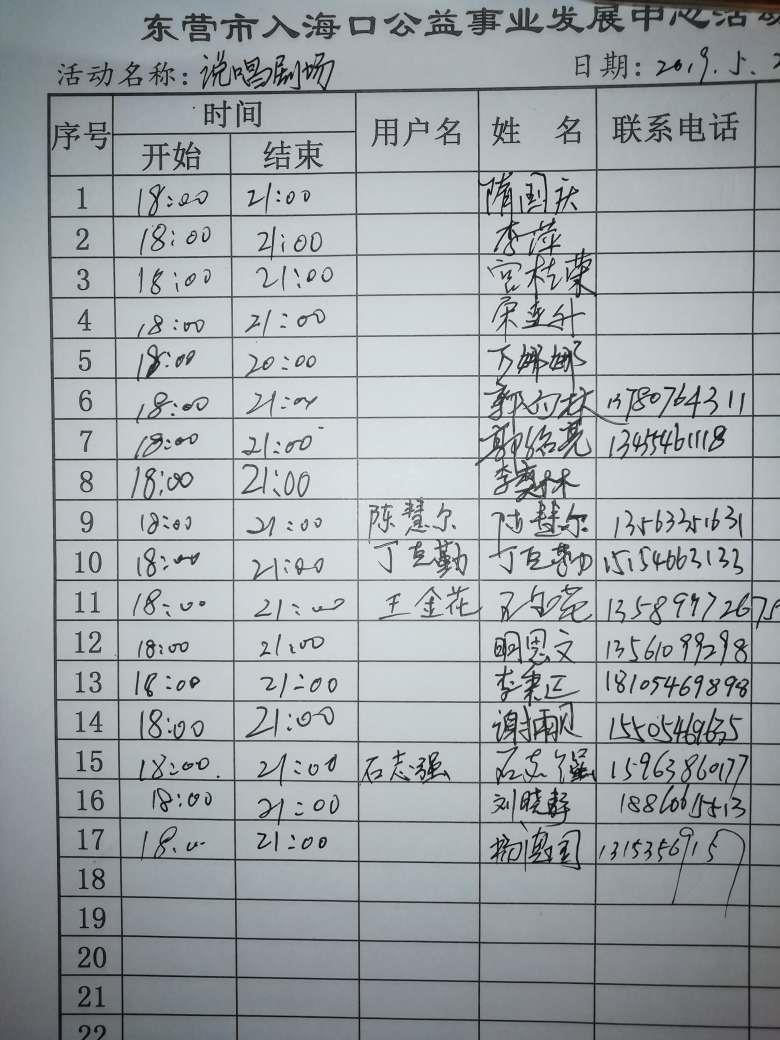 东营市入海口公益事业发展中心活动
活动名称：说唱剧场 日期：2019.5.2
序号 时间 用户名 姓 名 联系电话
开始 结束
1 18:00 21:00 隋国庆
2 18:00 21:00 李萍
3 18:00 21:00 宫桂荣
4 18:00 21:00
5 18:00 20:00
6 18:00 21:00 13780764311
7 18:00 21:00 郭绍亮 13455461118
8 18:00 21:00
9 18:00 21:00 陈慧尔 陈慧尔 13563351631
10 18:00 21:00 丁克勤 丁克勤 15154663133
11 18:00 21:00 王金花 王金花
12 18:00 21:00 明思文 13561099298
13 18:00 21:00 李秉正 18105469898
14 18:00 21:00
15 18:00 21:00 石志强 石志强 15963860177
16 18:00 21:00 刘晓静
17 18:00 21:00 13153569157
18
19
20
21
22